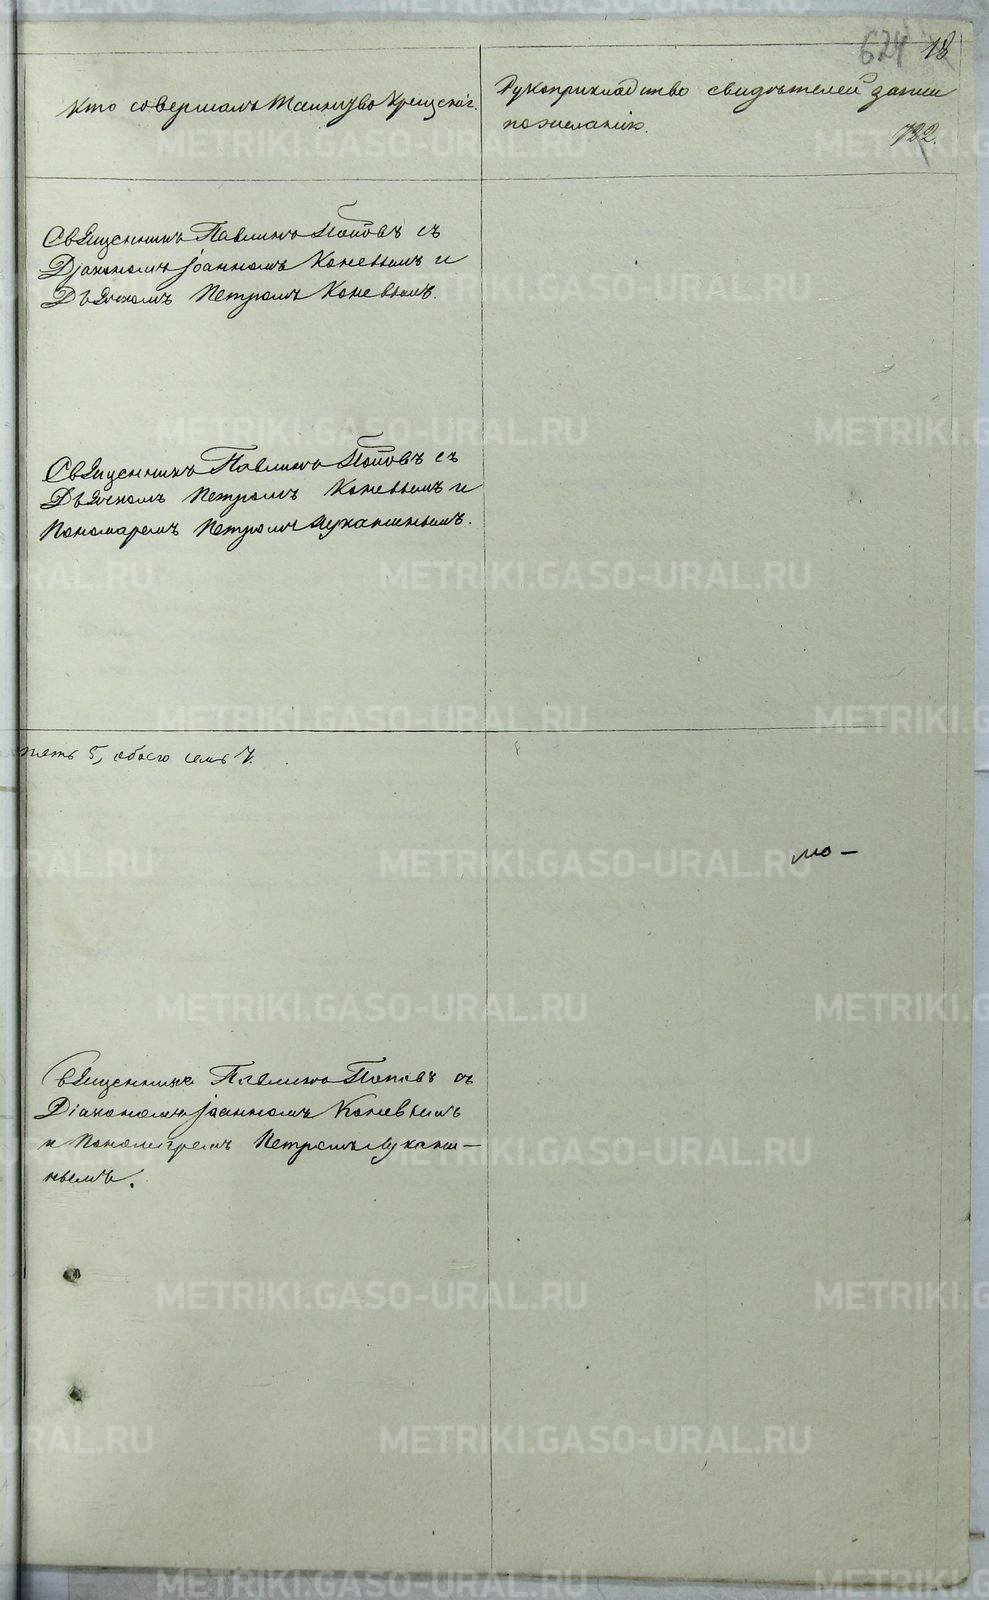 624 18
Кто совершалъ таинство крещенія.
Рукоприкладство свидѣтелей записи
по желанію.
722.
Священникъ Павлинъ Поповъ съ
Діакономъ Іоанномъ Коневымъ и
Дьячкомъ Петромъ Коневымъ.
Священникъ Павлинъ Поповъ съ
Дьячкомъ Петромъ Коневымъ и
Пономаремъ Петромъ Луканинымъ.
пять 5, обоего семь 7.
мо-
Священникъ Павлинъ Поповъ съ
Діакономъ Іоанномъ Коневымъ
и Пономаремъ Петромъ Лукани-
нымъ.
METRIKI.GASO-URAL.RU